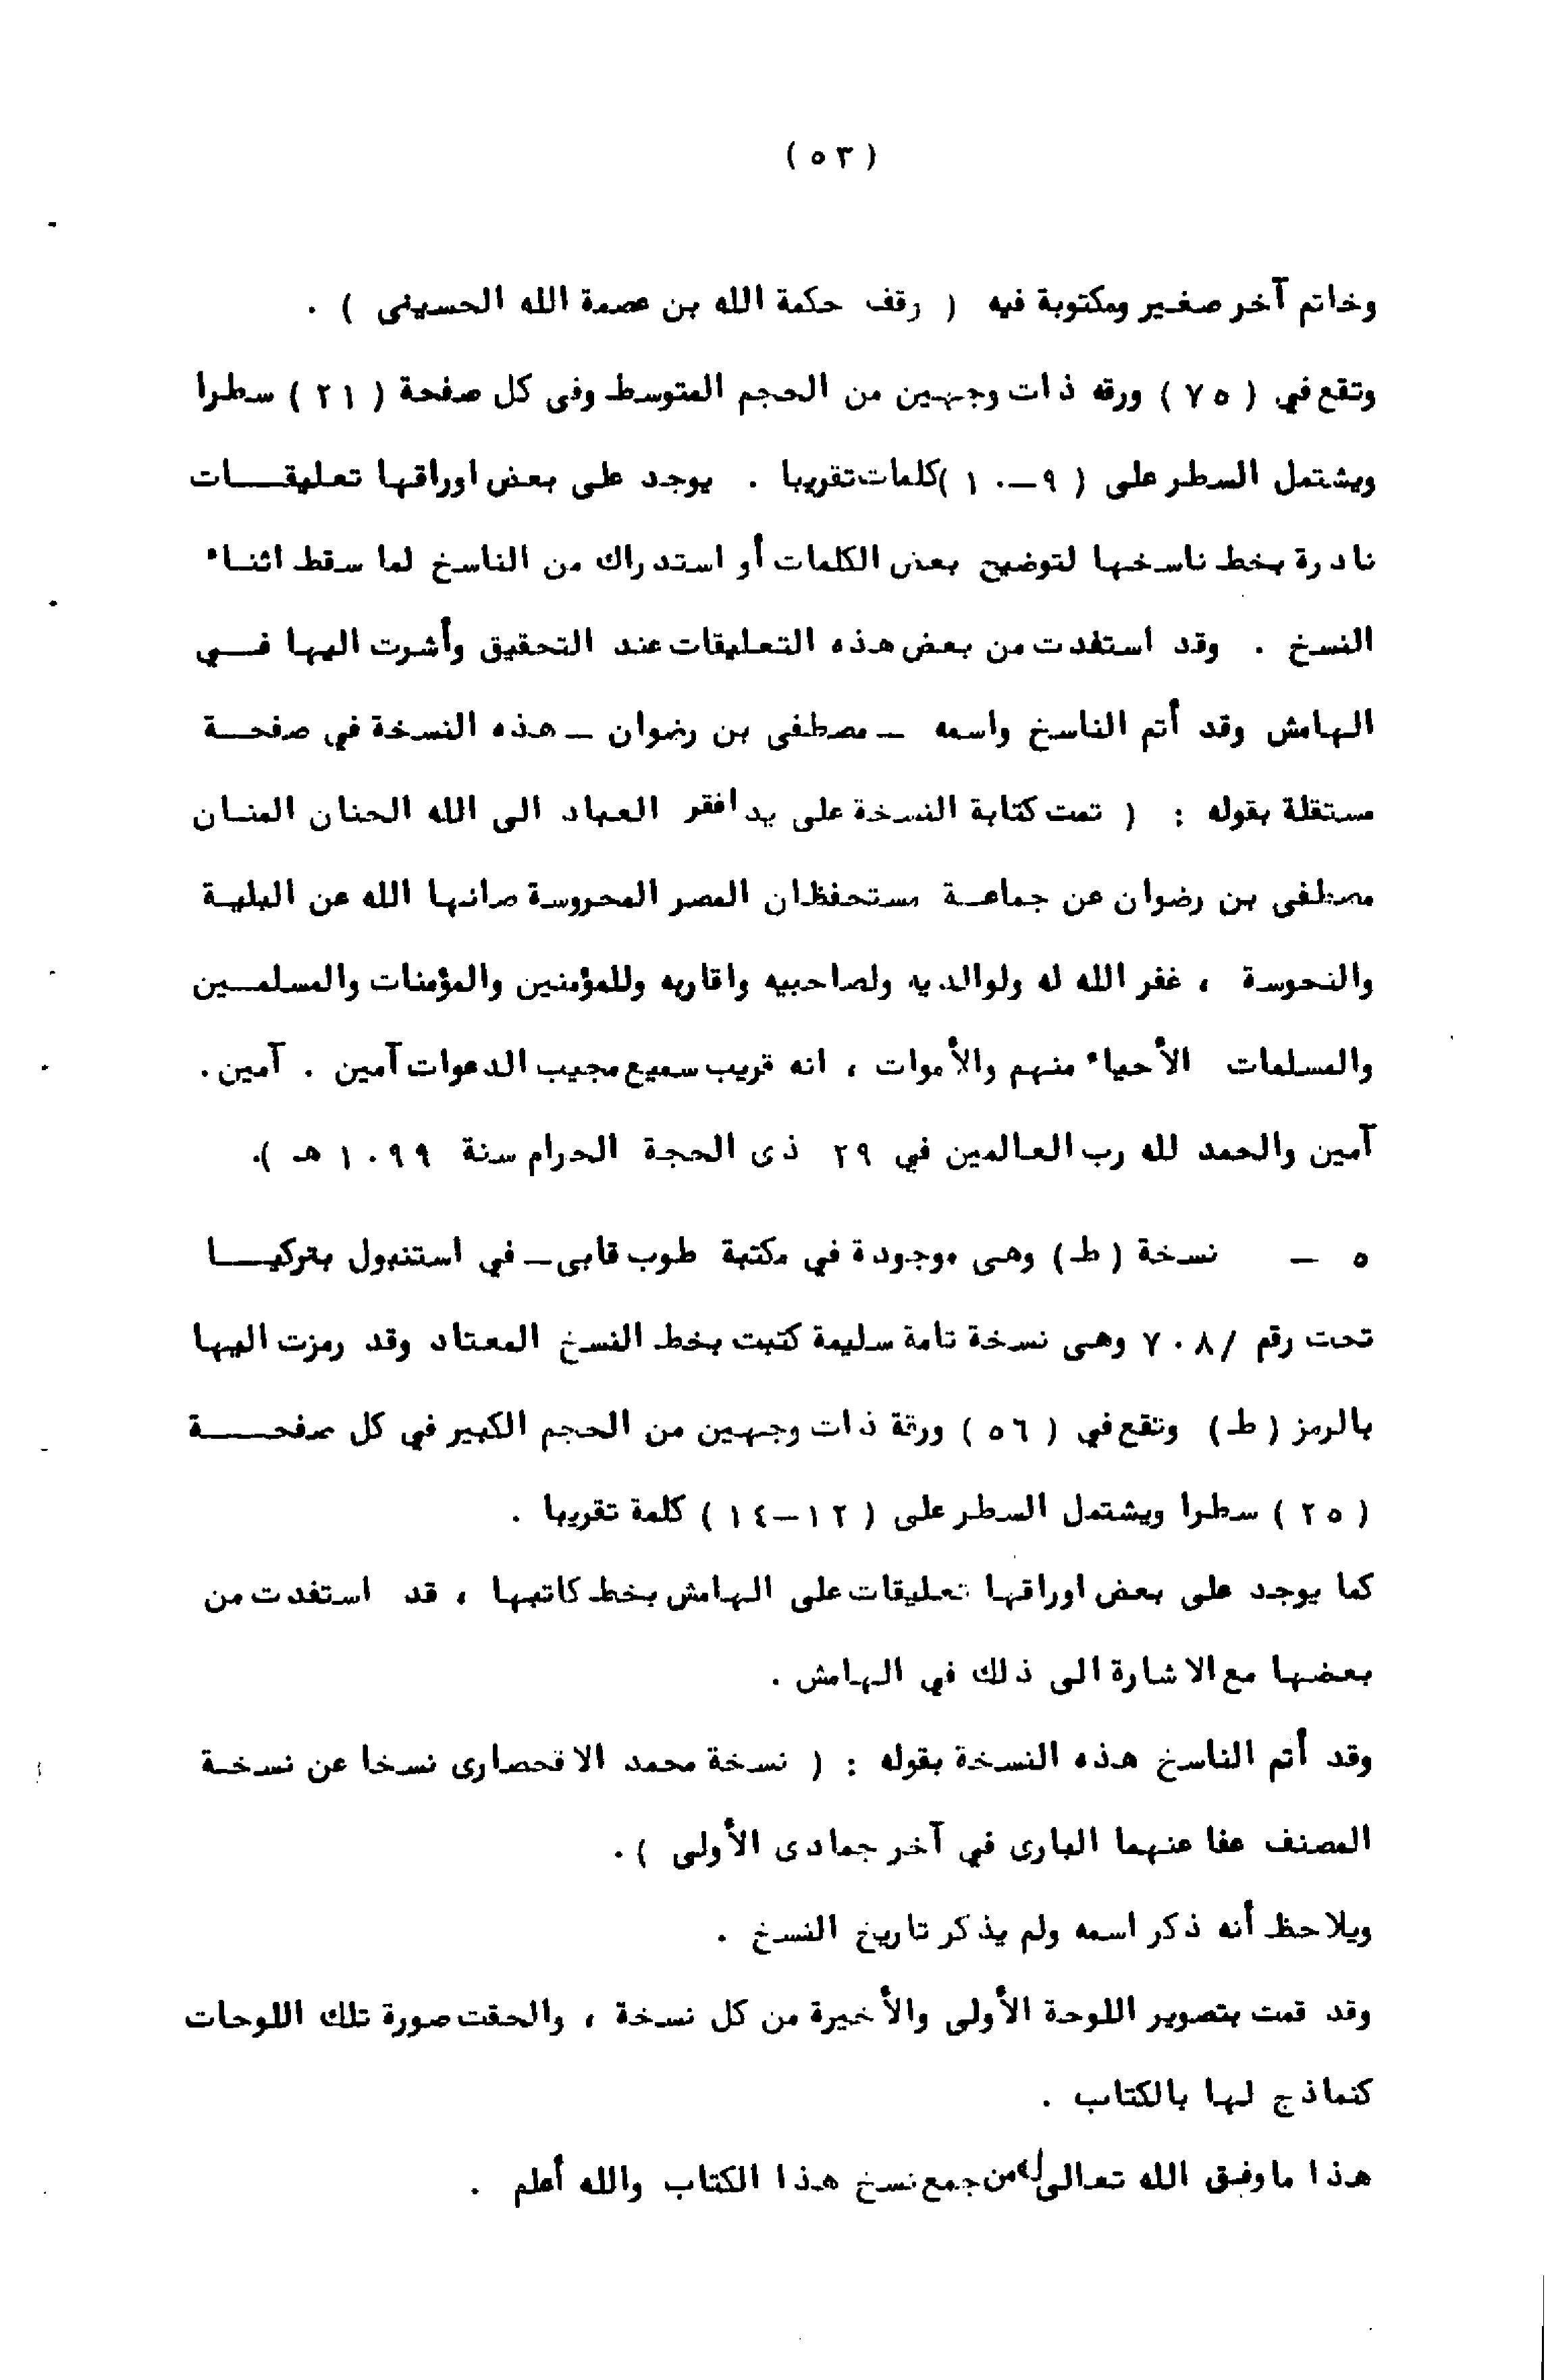 ( ٥٣ )
وخاتم آخر صغير ومكتوبة فيه ( رقف حكمة الله بن عصمة الله الحسينى ) .
وتقع في ( ٧٥ ) ورقه ذات وجهين من الحجم المتوسط وفى كل صفحة ( ٢١ ) سطرا
ويشتمل السطر على ( ٩ــ١٠ )كلمات تقريبا . يوجد على بعض اوراقها تعليقـــات
نادرة بخط ناسخها لتوضيح بعض الكلمات أو استدراك من الناسخ لما سقط اثنـاء
النسخ . وقد استفدت من بعض هذه التعليقات عند التحقيق وأشرت اليها فــي
الهامش وقد أتم الناسخ واسمه ــ مصطفى بن رضوان ــ هذه النسخة في صفحــة
مستقلة بقوله : ( تمت كتابة النسخة على يد افقر العباد الى الله الحنان المنـان
مصطفى بن رضوان عن جماعــة مستحفظان المصر المحروسة صانها الله عن البليـة
والنحوسة ، غفر الله له ولوالديه ولصاحبيه واقاربه وللمؤمنين والمؤمنات والمسلمــين
والمسلمات الأحياء منهم والأموات ، انه قريب سميع مجيب الدعوات آمين . آمين .
آمين والحمد لله رب العالمين في ٢٩ ذى الحجة الحرام سنة ١٠٩٩ هـ ).
٥ ــ نسخة ( ط ) وهى موجودة في مكتبة طوب قابى ــ في استنبول بتركيـــا
تحت رقم /٧٠٨ وهى نسخة تامة سليمة كتبت بخط النسخ المعتاد وقد رمزت اليها
بالرمز ( ط ) وتقع في ( ٥٦ ) ورقة ذات وجهين من الحجم الكبير في كل صفحـــة
( ٢٥ ) سطرا ويشتمل السطر على ( ١٢ــ١٤ ) كلمة تقريبا .
كما يوجد على بعض اوراقها تعليقات على الهامش بخط كاتبها ، قد استفدت من
بعضها مع الاشارة الى ذلك في الهامش .
وقد أتم الناسخ هذه النسخة بقوله : ( نسخة محمد الاقحصارى نسخا عن نسخـة
المصنف عفا عنهما البارى في آخر جمادى الأولى ) .
ويلاحظ أنه ذكر اسمه ولم يذكر تاريخ النسخ .
وقد قمت بتصوير اللوحة الأولى والأخيرة من كل نسخة ، والحقت صورة تلك اللوحات
كنماذج لها بالكتاب .
هذا ما وفق الله تعالى له من جمع نسخ هذا الكتاب والله أعلم .